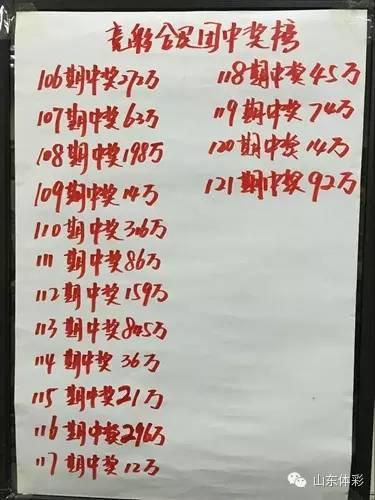 竞彩全民团中奖榜
106期中奖272万
107期中奖63万
108期中奖198万
109期中奖14万
110期中奖316万
111期中奖86万
112期中奖159万
113期中奖845万
114期中奖36万
115期中奖21万
116期中奖296万
117期中奖12万
118期中奖45万
119期中奖74万
120期中奖14万
121期中奖92万
山东体彩